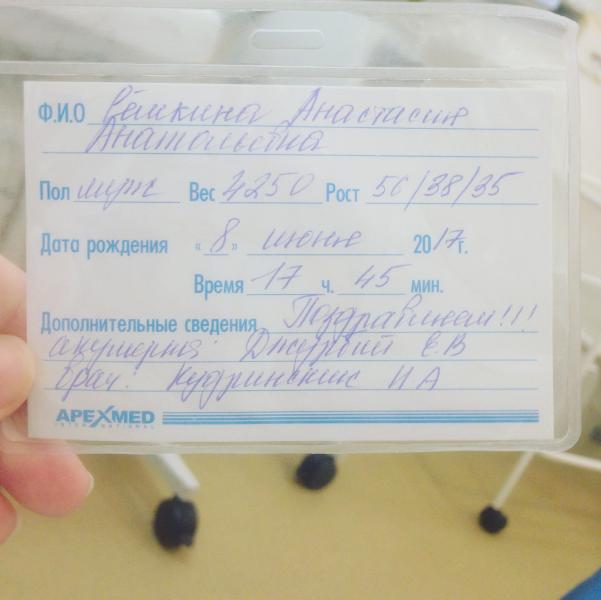 Ф.И.О Сёмкина Анастасия
Анатольевна
Пол муж Вес 4250 Рост 56/38/35
Дата рождения «8» июня 2017г.
Время 17 ч. 45 мин.
Дополнительные сведения Поздравляем!!!
акушерка: Е.В
врач: И А
APEXMED
INTERNATIONAL